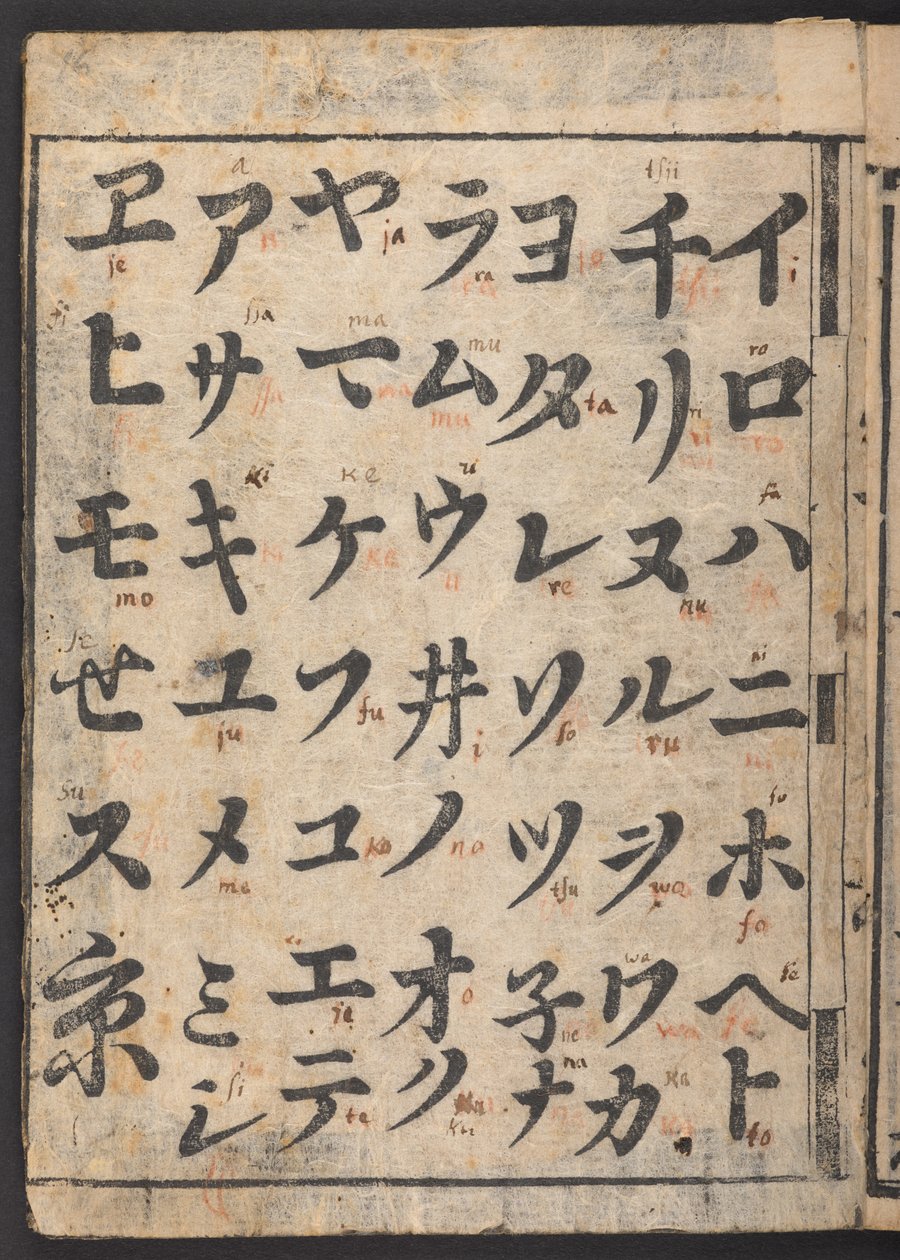 イロハニホヘト
i ro fa ni fo fe to
チリヌルヲワカ
tſji ri nu ru wo wa ka
ヨタレソツ子ナ
jo ta re ſo tſu ne na
ラムウ井ノオク
ra mu u i no o ku
ヤマケフコエテ
ja ma ke fu ko je te
アサキユメミシ
a ſſa ki ju me ſi
ヱヒモセス京
je fi mo ſe ſu